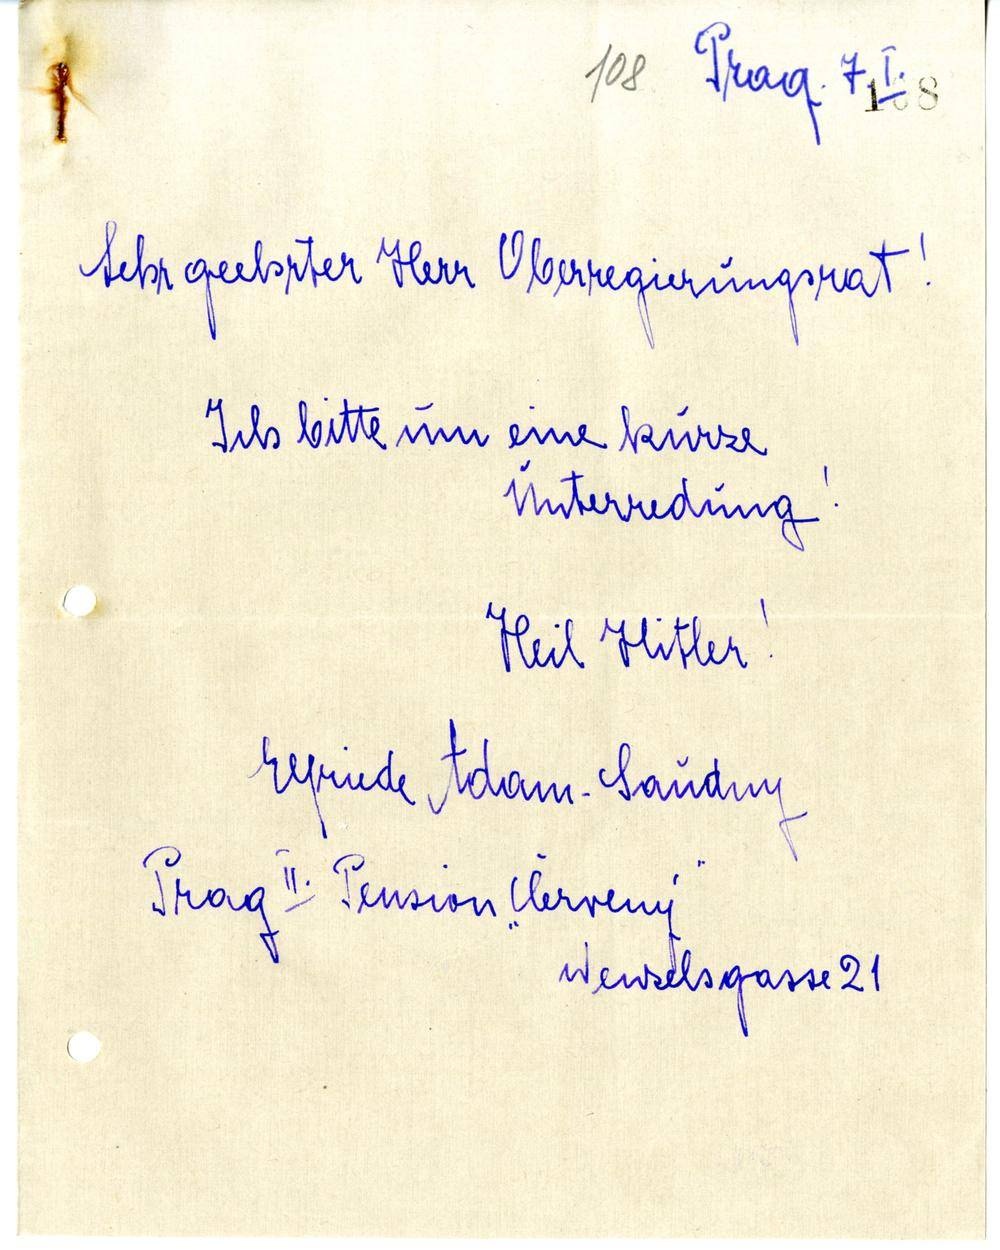 108 Prag. 7. I.
Sehr geehrter Herr Oberregierungsrat!
Ich bitte um eine kurze
Unterredung!
Heil Hitler!
Elfriede Adam-Saudny
Prag II. Pension „Červený"
Wenzelsgasse 21